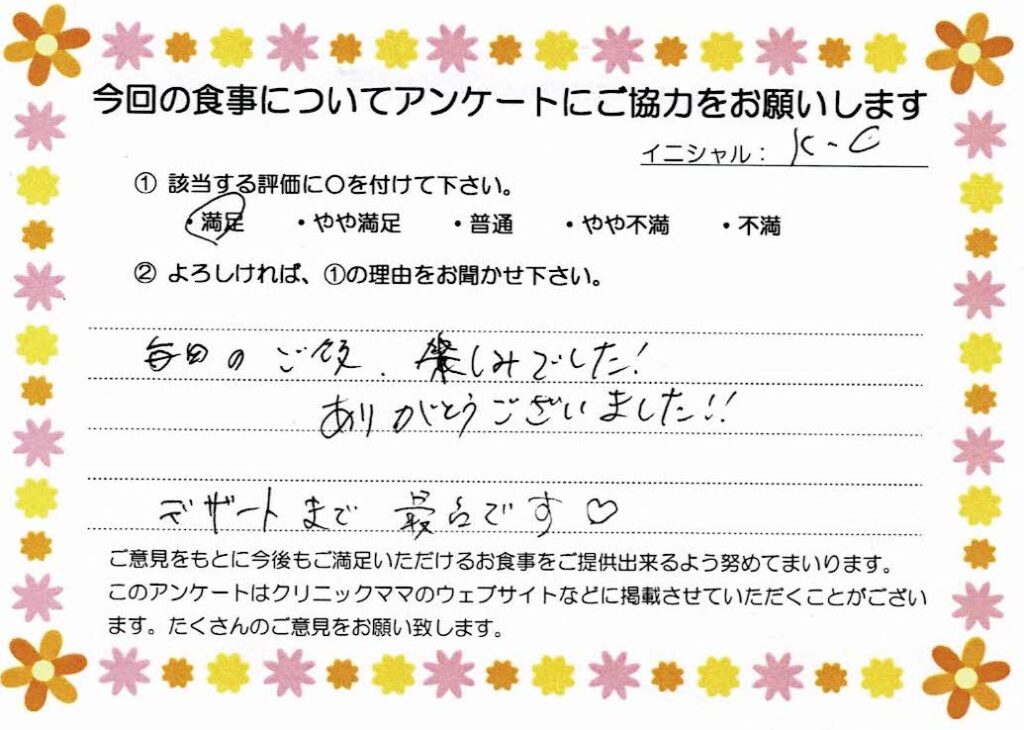 今回の食事についてアンケートにご協力をお願いします
イニシャル： K-C
① 該当する評価に〇を付けて下さい。
・満足 ・やや満足 ・普通 ・やや不満 ・不満
② よろしければ、①の理由をお聞かせ下さい。
毎日のご飯、楽しみでした！
ありがとうございました！！
デザートまで 最高です♡
ご意見をもとに今後もご満足いただけるお食事をご提供出来るよう努めてまいります。
このアンケートはクリニックママのウェブサイトなどに掲載させていただくことがござい
ます。たくさんのご意見をお願い致します。